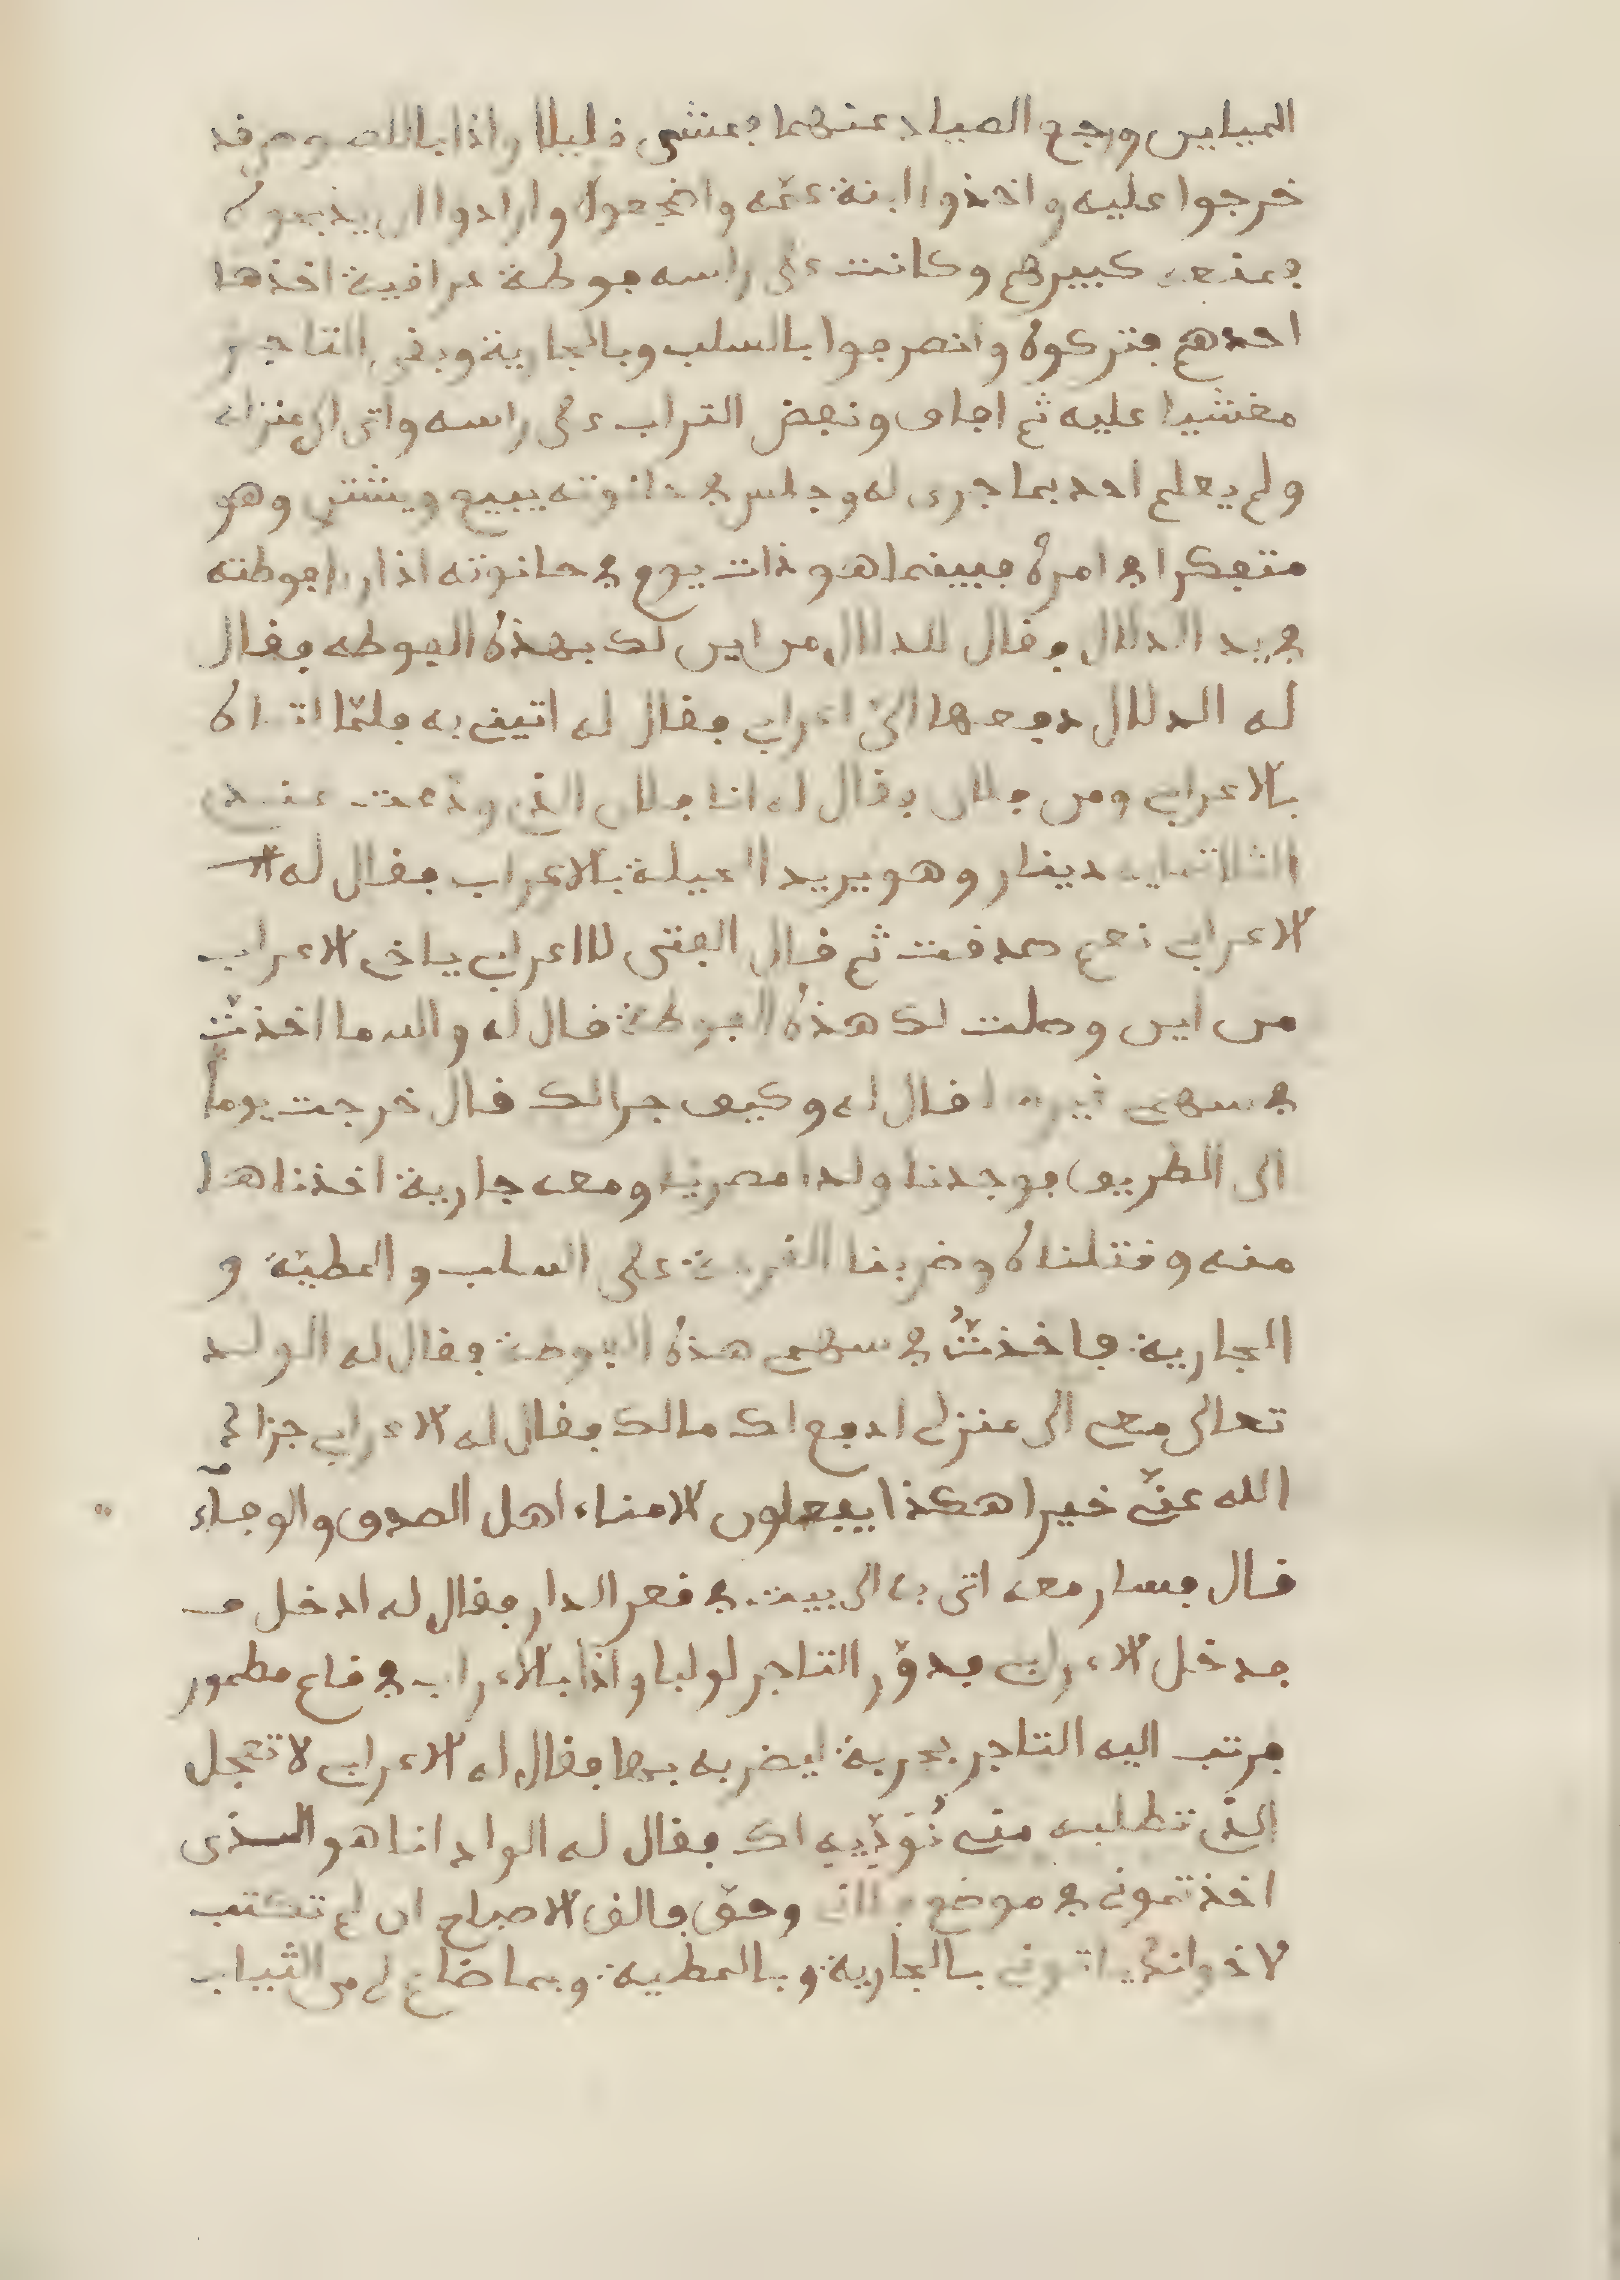 المبايس ورجع الصياد عنهما فمشى قليلا واذا باللصوص قد
خرجوا عليه واخذوا ابنة عمّه واضجعوه وارادوا ان يذبحوه
فمنعه كبيرهم وكانت على راسه فوطة عراقية اخذها
احدهم فتركوه وانصرفوا بالسلب وبالجارية وبقى التاجر
مغشيا عليه ثم افاق ونفض التراب على راسه واتى الى منزله
ولم يعلم احد بما جرى له وجلس في حانوته يبيع ويشترى وهو
متفكرا في امره فبينما هو ذات يوم في حانوته اذ راى فوطته
في يد الدلال وقال للدلال من اين لك بهذه الفوطه فقال
له الدلال دفعها اليّ اعرابي فقال له اتينى به فلمّا اتاه
بالاعرابي ومن فلان فقال له انا فلان الذي وضعت عندي
الثلاثماية دينار وهو يريد الحيلة بالاعراب فقال له الا
الاعرابي نعم صدقت ثم قال الفتى للاعرابي ياخى الاعراب
من اين وصلت لك هذه الفوطة قال له والله ما اخذتُ
في سهمى غيرها قال له وكيف جرا لك قال خرجت يوماً
الى الطريق فوجدنا ولدا مصريا ومعه جارية اخذناها
منه وقتلناه وضربنا القرعة على السلب والمطيّة و
الجارية فاخذتُ في سهمى هذه الفوطة فقال له الولد
تعالى معى الى منزلى ادفع لك مالك فقال له الاعرابي جزاك
الله عنّى خيرا هكذا يفعلون الامناء اهل الصدق والوفاء
قال فسار معه اتى به الى بيت في قعر الدار فقال له ادخل فـ
فدخل الاعرابي فدوّر التاجر لولبا واذا بالاعراب في قاع مطمور
فرتب اليه التاجر بحربة ليضربه بها فقال له الاعرابي لا تعجل
الذي تطلبه منى نُؤدّيه لك فقال له الولد انا هو الـذى
اخذتمونى في موضع فلان وحق فالق الاصباح ان لم تكتب
لاخوانك ياتونى بالجارية وبالمطيه وبما ضاع لى من الثياب